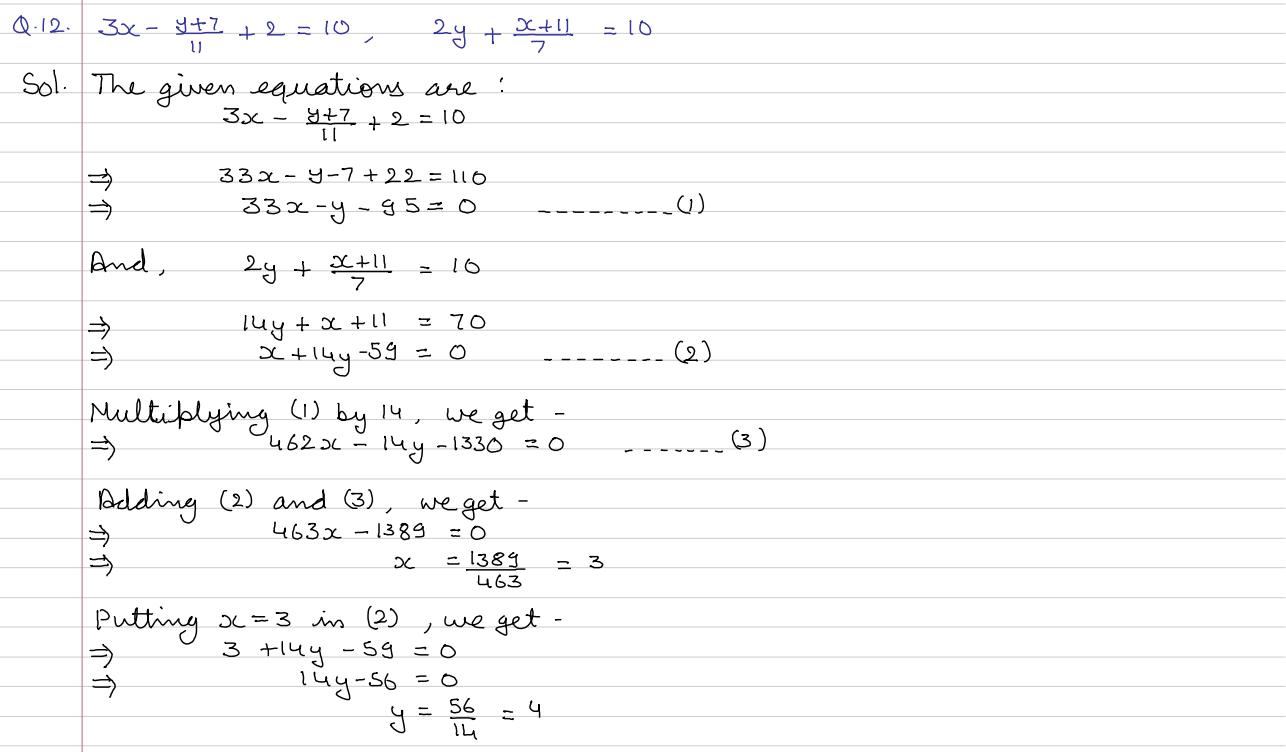 Q.12. 3x - (y+7)/11 + 2 = 10, 2y + (x+11)/7 = 10
Sol. The given equations are :
3x - (y+7)/11 + 2 = 10
⇒ 33x - y - 7 + 22 = 110
⇒ 33x - y - 95 = 0 ---------(1)
And, 2y + (x+11)/7 = 10
⇒ 14y + x + 11 = 70
⇒ x + 14y - 59 = 0 --------(2)
Multiplying (1) by 14, we get -
⇒ 462x - 14y - 1330 = 0 -------(3)
Adding (2) and (3), we get -
⇒ 463x - 1389 = 0
⇒ x = 1389/463 = 3
Putting x = 3 in (2), we get -
⇒ 3 + 14y - 59 = 0
⇒ 14y - 56 = 0
y = 56/14 = 4